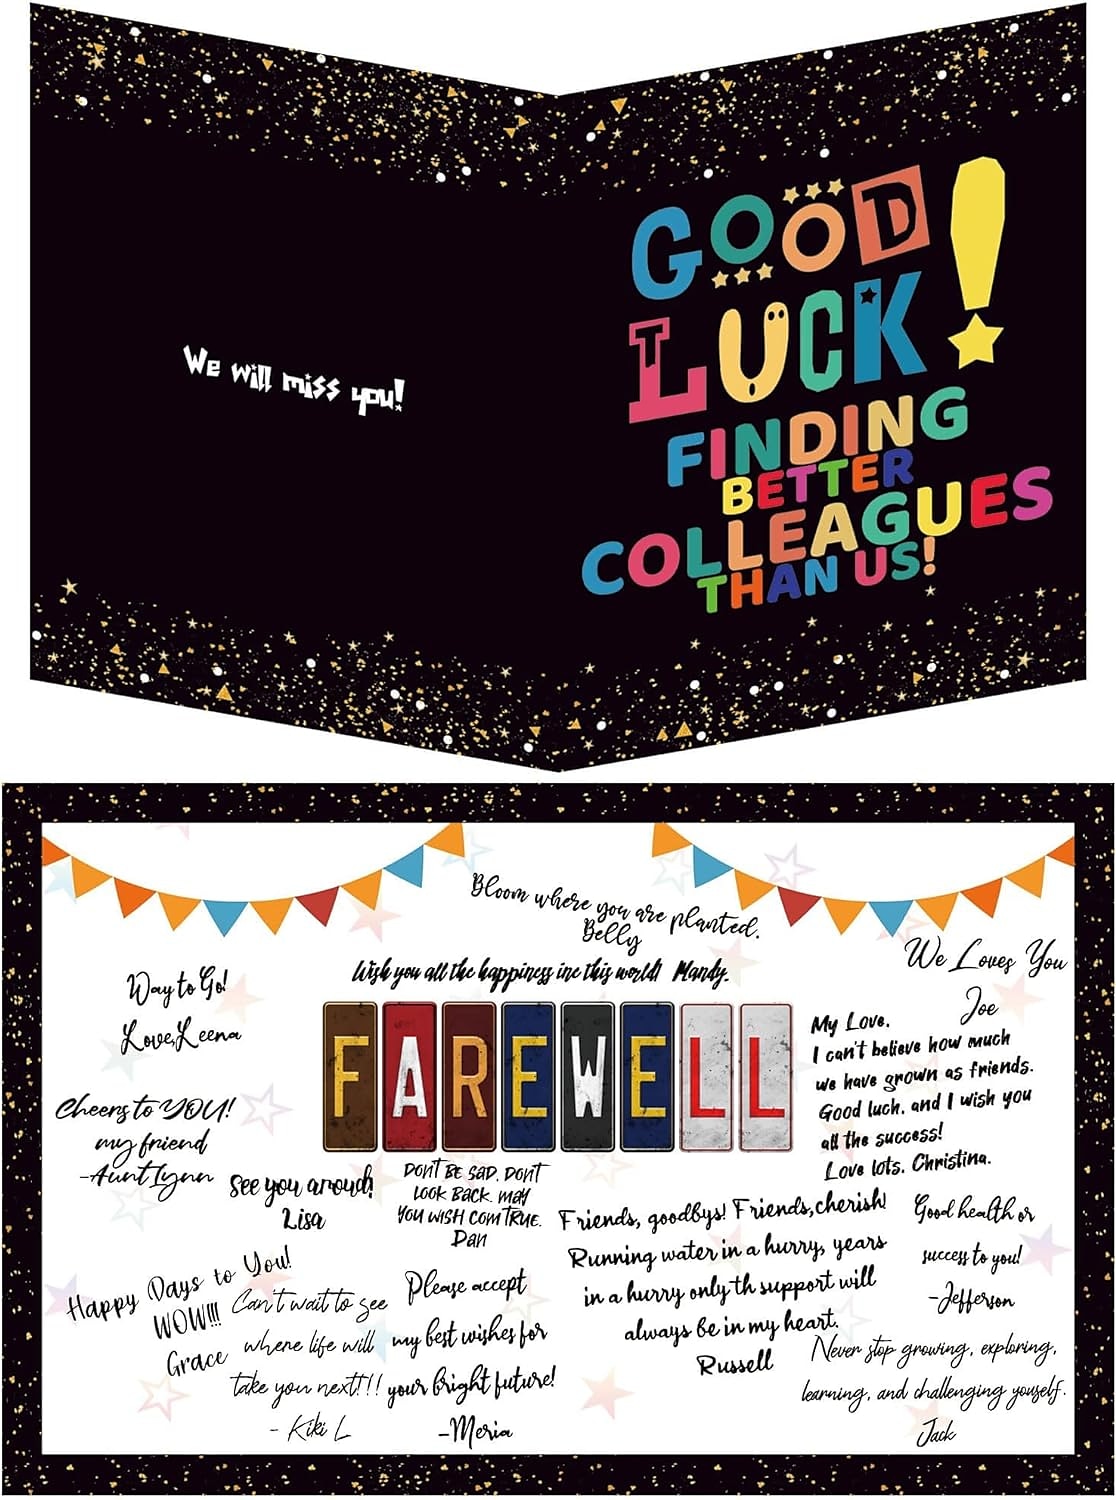 We will miss you!
GOOD
LUCK!
FINDING
BETTER
COLLEAGUES
THAN US!
Bloom where you are planted.
Belly
Wish you all the happiness inc this world! Mandy.
FAREWELL
Way to Go!
Love,Leena
Cheers to YOU!
my friend
-Aunt Lynn
See you aroud!
Lisa
Happy Days to You!
WOW!!!
Grace
Can't wait to see
where life will
take you next!!!
- Kiki L
DON'T BE SAD. DON'T
LOOK BACK. MAY
YOU WISH COM TRUE.
Dan
Please accept
my best wishes for
your bright future!
-Meria
Friends, goodbys! Friends,cherish!
Running water in a hurry, years
in a hurry only th support will
always be in my heart.
Russell
We Loves You
Joe
My Love.
I can't believe how much
we have grown as friends.
Good luck. and I wish you
all the success!
Love lots. Christina.
Good health or
success to you!
-Jefferson
Never stop growing, exploring,
learning, and challenging youself.
Jack